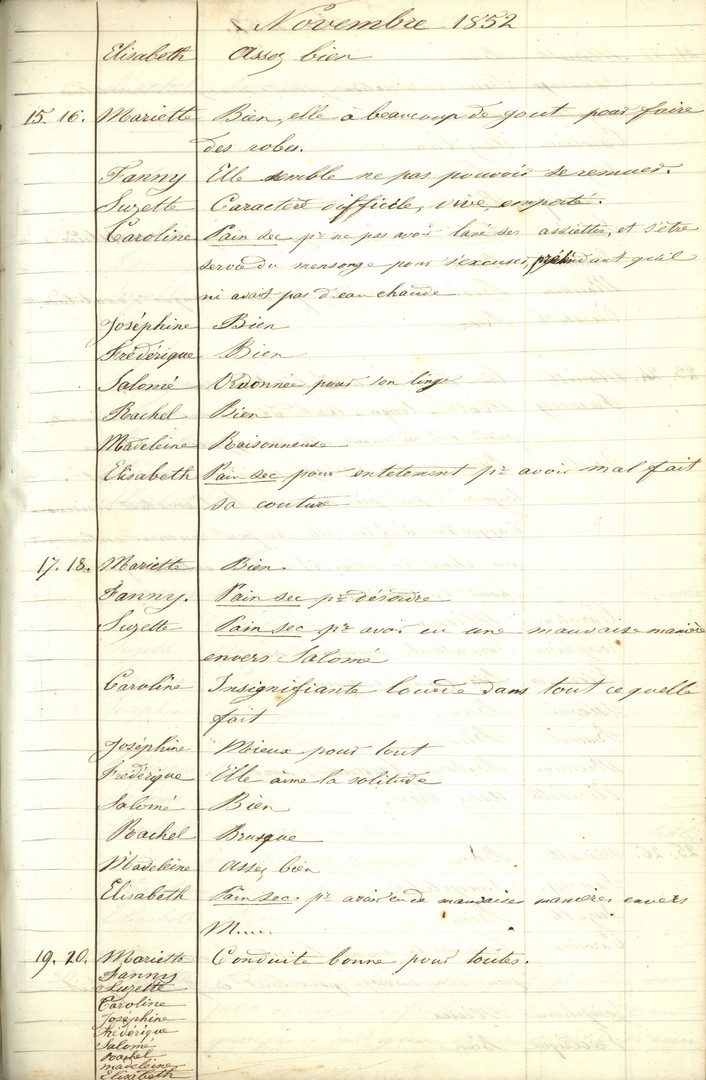 Novembre 1852
Elisabeth Assez bien
15. 16. Mariette Bien, elle a beaucoup de gout pour faire
des robes.
Fanny Elle semble ne pas pouvoir se remuer.
Suzette Caractère difficile, vive, emporté.
Caroline Pain sec pr ne pas avoir lavé ses assiettes, et s'être
servie du mensonge pour s'excuser, prétendant qu'il
ni avait pas d'eau chaude
Joséphine Bien
Frédérique Bien
Salomé Ordonnée pour son linge
Rachel Bien
Madeleine Raisonneuse
Elisabeth Pain sec pour entetement pr avoir mal fait
sa couture
17. 18. Mariette Bien.
Fanny. Pain sec pr désordre
Suzette Pain sec pr avoir eu une mauvaise manière
envers Salomé
Caroline Insignifiante lourde dans tout ce quelle
fait
Joséphine Mieux pour tout
Frédérique Elle aime la solitude
Salomé Bien
Rachel Brusque
Madeleine Assez bien
Elisabeth Pain sec. pr avoir eu de mauvaises manières envers
M....
19. 20. Mariette Conduite bonne pour toutes.
Fanny
Suzette
Caroline
Joséphine
Frédérique
Salomé
Rachel
madeleine
Elisabeth